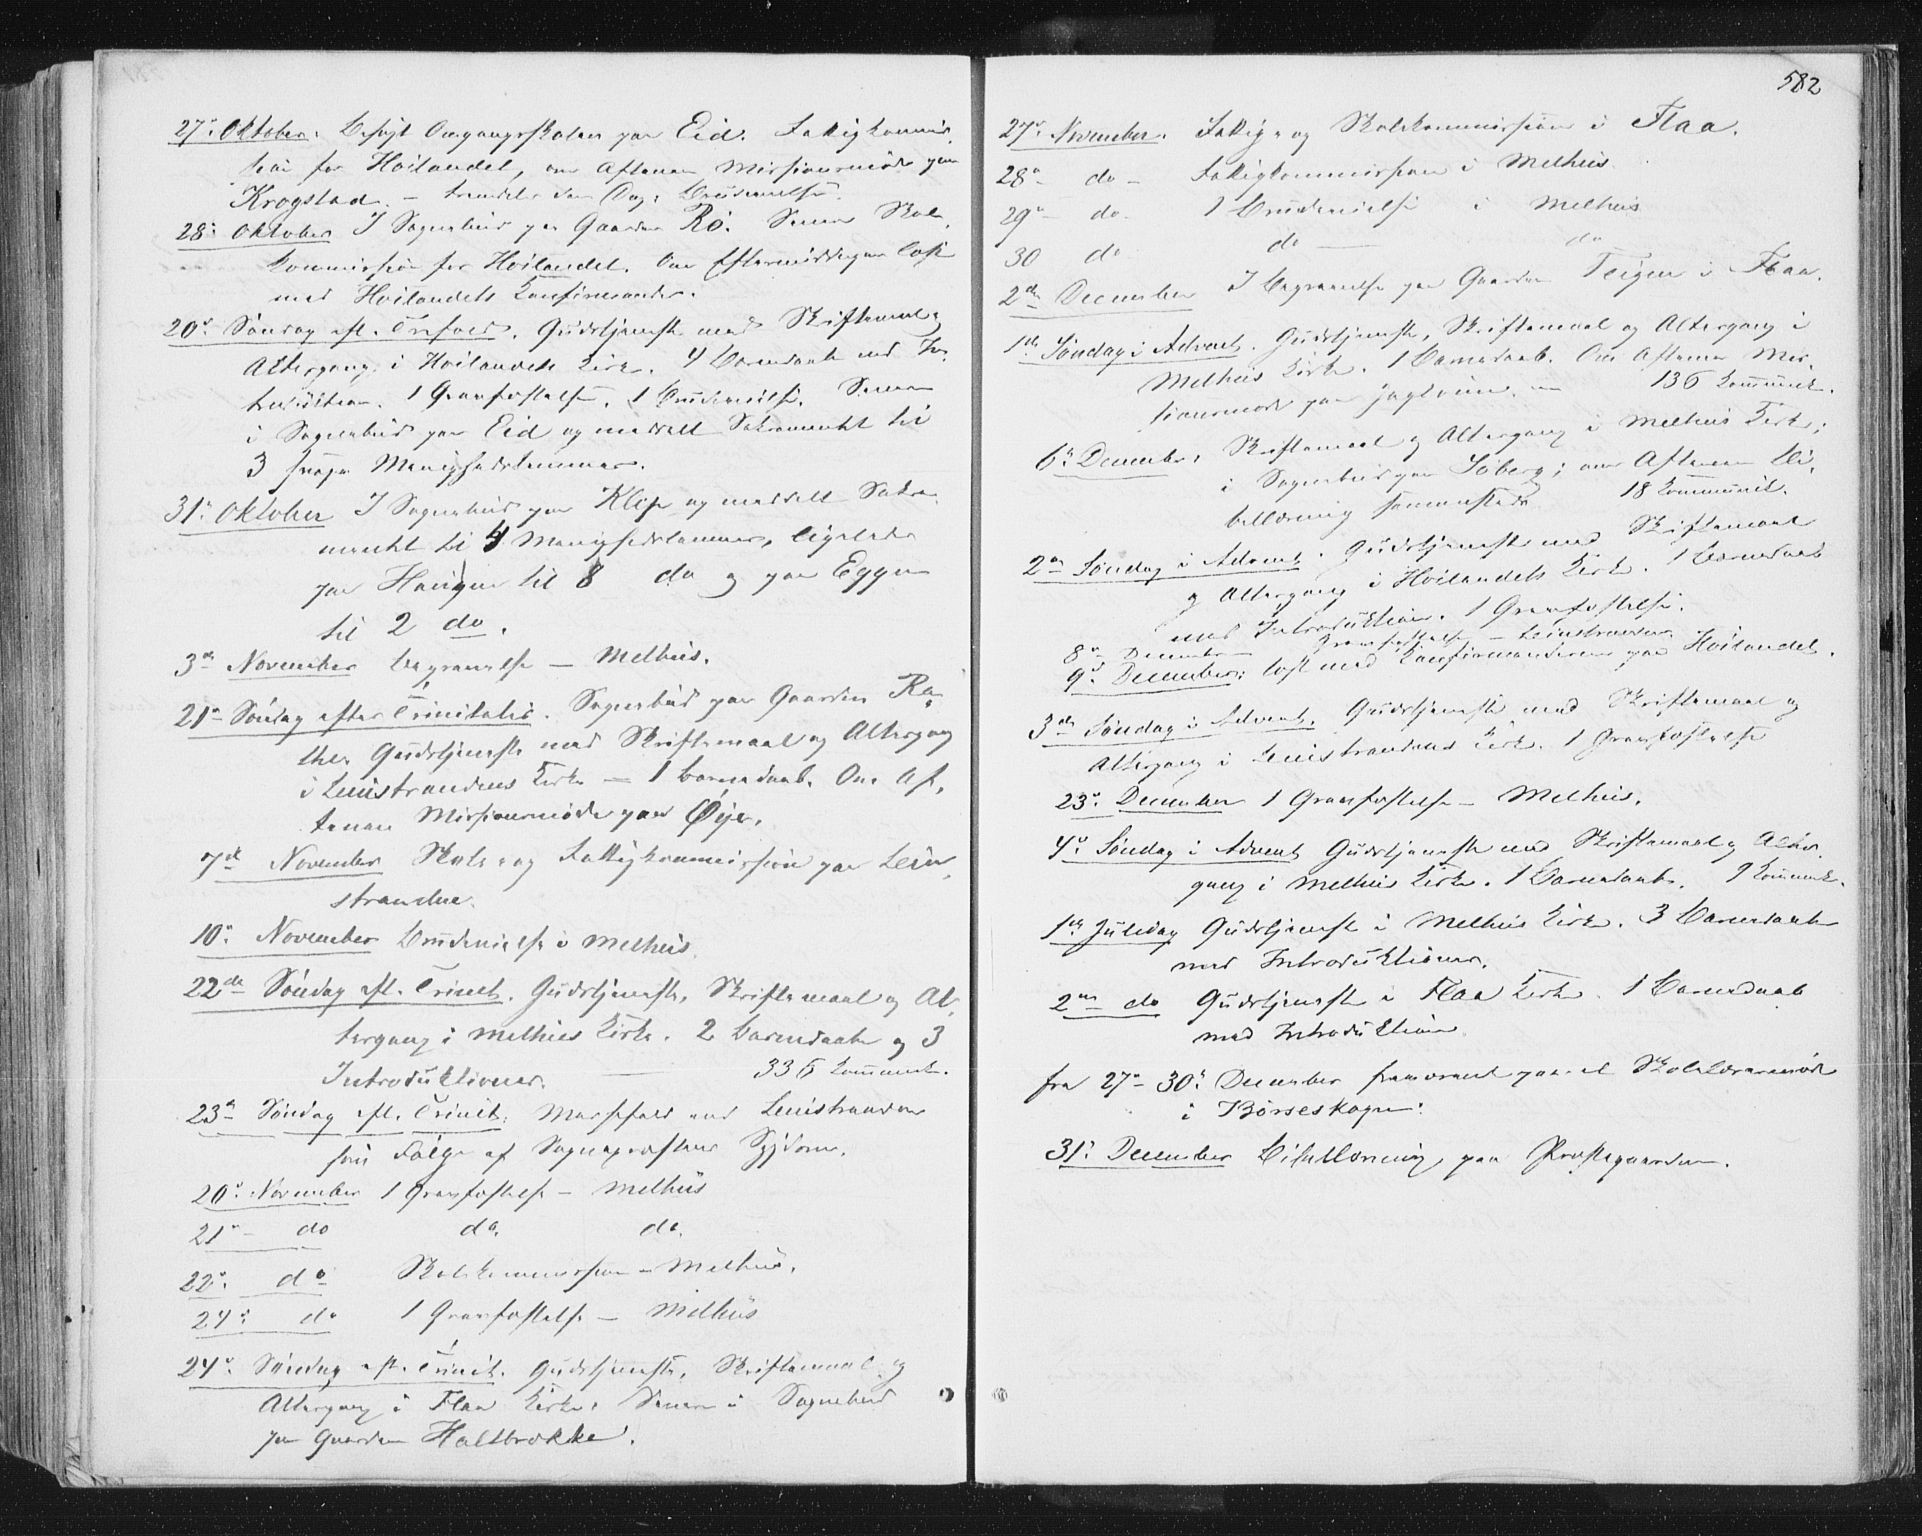 27de Oktober. Besøgt Omgangsskolen paa Eid. Fattigkommis-
sion for Høilandet, om Aftenen Missionsmøde paa
Krogstad. – Dag: Brudevielse.
28de Oktober I Sognebud paa Gaarden Rø. Senere Skole-
kommission for Høilandet. Om Eftermiddagen læst
med Høilandets Konfirmander.
20de Søndag eft. Trefold. Gudstjeneste med Skriftemaal og
Altergang i Høilandets Kirke. 4 Barnedaab med In-
troduktion. 1 Gravfæstelse. 1 Brudevielse. Senere
i Sognebud paa Eid og meddelt Sakramentet til
3 svage Menighedslemmer.
31de Oktober I Sognebud paa Klefs og meddelt Sakra-
mentet til 4 Menighedslemmer, ligeledes
paa Haugen til 8 do og paa Eggen
til 2 do.
3die November Begravelse – Melhus.
21de Søndag efter Trinitatis. Sognebud paa Gaarden Ra-
then Gudstjeneste med Skriftemaal og Altergang
i Leinstrandens Kirke – 1 Barnedaab. Om Af-
tenen Missionsmøde paa Øye.
7de November Skole- og Fattigkommission paa Lein-
stranden.
10de November Brudevielse i Melhus.
22de Søndag eft. Trinit. Gudstjeneste, Skriftemaal og Al-
tergang i Melhus Kirke. 2 Barnedaab og 3
Introduktioner. — 336 Kommunik.
23de Søndag eft. Trinit. Messefald ved Leinstranden
som Følge af Sognepræstens Sygdom.
20de November 1 Gravfæstelse – Melhus
21de – do do. do.
22de do Skolekommission – Melhus.
24de do 1 Gravfæstelse – Melhus
24de Søndag eft. Trinit. Gudstjeneste, Skriftemaal og
Altergang i Flaa Kirke. Senere i Sognebud
paa Gaarden Haltbrække.
582
27de November. Fattig- og Skolekommission i Flaa.
28de do – Fattigkommission i Melhus.
29de – do. 1 Brudevielse i Melhus
30 do do — do
2den December I Begravelse paa Gaarden Teigen i Flaa.
1ste Søndag i Advent. Gudstjeneste, Skriftemaal og Altergang i
Melhus Kirke. 1 Barnedaab. Om Aftenen Mis-
sionsmøde paa – 136 Kommunik.
6te December. Skriftemaal og Altergang i Melhus Kirke;
i Sognebud paa Søberg; om Aftenen Bi-
bellæsning sammesteds 18 Kommunik.
2den Søndag i Advent. Gudstjeneste med Skriftemaal
og Altergang i Høilandets Kirke. 1 Barnedaab
med Introduktion. 1 Gravfæstelse.
8de December Gravfæstelse – Leinstranden
9de December; læst med Konfirmanderne paa Høilandet.
3die Søndag i Advent. Gudstjeneste med Skriftemaal og
Altergang i Leinstrandens Kirke. 1 Gravfæstelse
23de December 1 Gravfæstelse – Melhus.
4de Søndag i Advent Gudstjeneste med Skriftemaal og Alter-
gang i Melhus Kirke. 1 Barnedaab. 9 Kommunik.
1ste Juledag Gudstjeneste i Melhus Kirke. 3 Barnedaab
med Introduktioner.
2den do Gudstjeneste i Flaa Kirke. 1 Barnedaab
med Introduktion
fra 27de – 30de December fraværende paa et Skolelærermøde
i Børseskogn.
31te December Bibellæsning paa Præstegaarden.